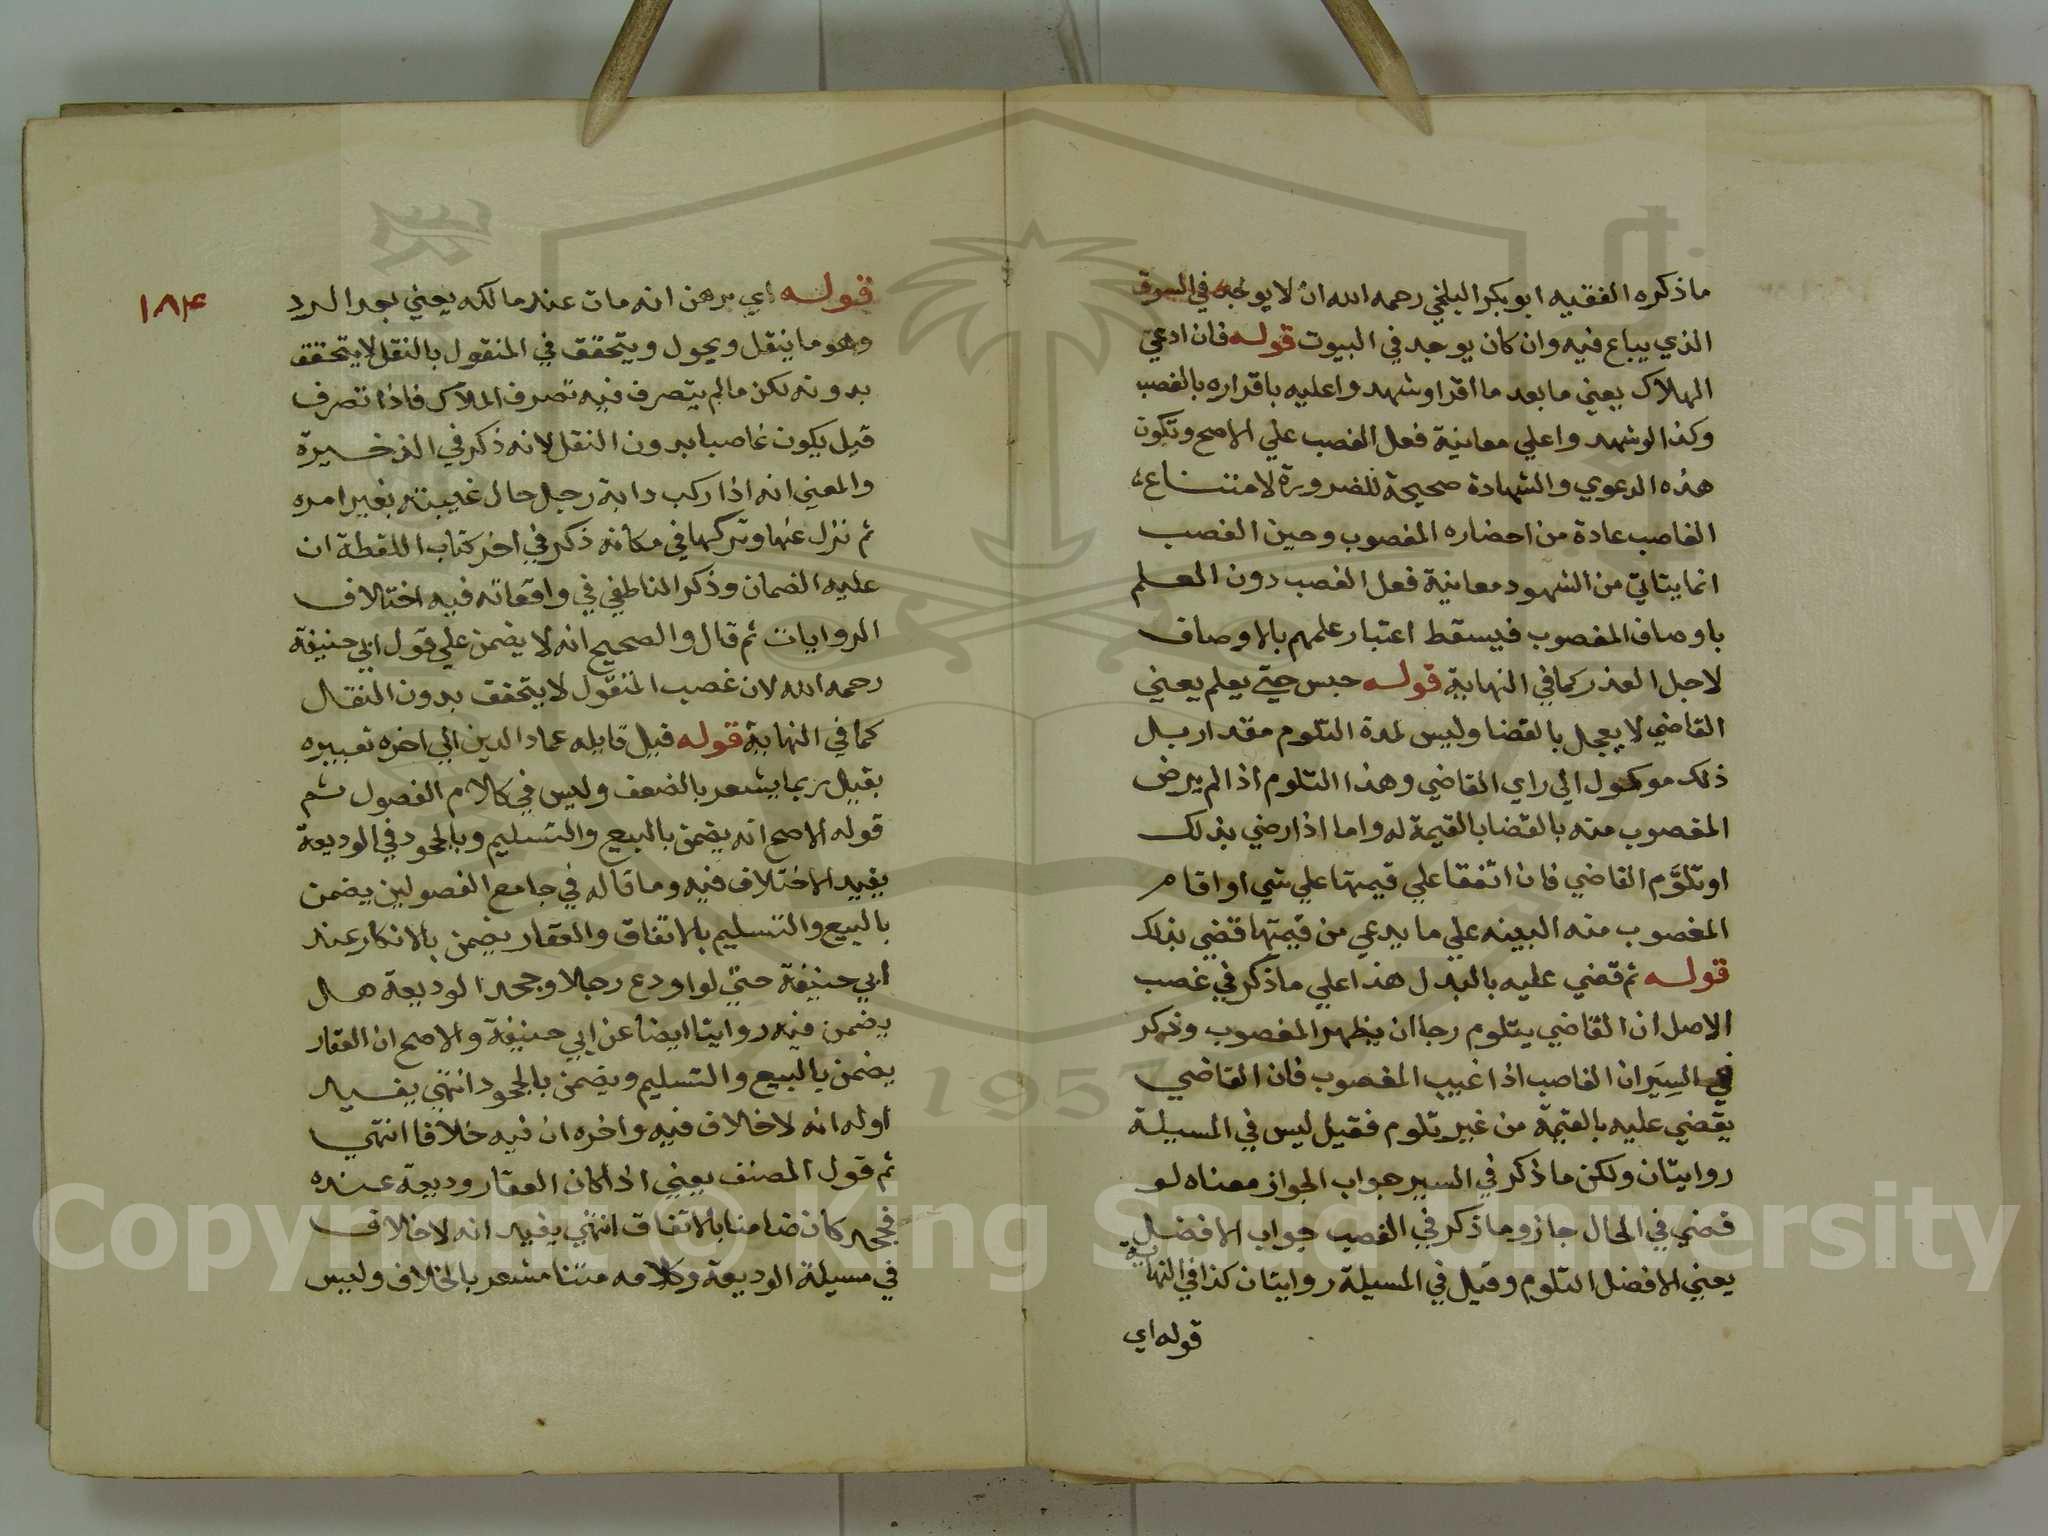 ما ذكره الفقيه ابو بكر البلخي رحمه الله ان لا يوجد في السوق
الذي يباع فيه وان كان يوجد في البيوت قوله فان ادعى
الهلاك يعني ما بعد ما اقر او شهدوا عليه باقراره بالغصب
وكذا لو شهدوا علي معاينة فعل الغصب علي الاصح وتكون
هذه الدعوي والشهادة صحيحة للضرورة لامتناع
الغاصب عادة من احضاره المغصوب وحين الغصب
انما يتاتي من الشهود معاينة فعل الغصب دون العلم
باوصاف المغصوب فيسقط اعتبار علمهم بالاوصاف
لاجل العذر كما في النهاية قوله حبس حتي يعلم يعني
القاضي لا يعجل بالقضا وليس لمدة التلوم مقدار بل
ذلك موكول الي راي القاضي وهذا التلوم اذا لم يرض
المغصوب منه بالقضا بالقيمة له واما اذا رضي بذلك
او تلوم القاضي فان اتفقا علي قيمتها علي شي او اقام
المغصوب منه البينه علي ما يدعي من قيمتها قضي بذلك
قوله ثم قضي عليه بالبدل هذا علي ما ذكر في غصب
الاصل ان القاضي يتلوم رجا ان يظهر المغصوب وذكر
في السير ان الغاصب اذا غيب المغصوب فان القاضي
يقضي عليه بالقيمة من غير تلوم فقيل ليس في المسيلة
روايتان ولكن ما ذكر في السير جواب الجواز معناه لو
قضي في الحال جاز وما ذكر في الغصب جواب الافضل
يعني الافضل التلوم وقيل في المسيلة روايتان كذا في النهاية
قوله اي
١٨٤
قوله اي برهن انه مات عند مالكه يعني بعد الرد
وهو ما ينقل ويحول ويتحقق في المنقول بالنقل لا يتحقق
بدونه لكن ما لم يتصرف فيه تصرف الملاك فاذا تصرف
قيل يكون غاصبا بدون النقل لانه ذكر في الذخيرة
والمعني انه اذا ركب دابة رجل حال غيبته بغير امره
ثم نزل عنها وتركها في مكانه ذكر في اخر كتاب اللقطة ان
عليه الضمان وذكر الناطفي في واقعاته فيه اختلاف
الروايات ثم قال والصحيح انه لا يضمن علي قول ابي حنيفة
رحمه الله لان غصب المنقول لا يتحقق بدون النقال
كما في النهاية قوله قيل قايله عماد الدين الي اخره تعبيره
بقيل ربما يشعر بالضعف وليس في كلام الفصول ثم
قوله الاصح انه يضمن بالبيع والتسليم وبالجحود في الوديعة
يفيد الاختلاف فيه وما قاله في جامع الفصولين يضمن
بالبيع والتسليم بالاتفاق والعقار يضمن بالانكار عند
ابي حنيفة حتي لو اودع رجلا وجحد الوديعة هل
يضمن فيه روايتا ايضا عن ابي حنيفة والاصح ان العقار
يضمن بالبيع والتسليم ويضمن بالجحود انتهي يفيد
اوله انه لا خلاف فيه واخره ان فيه خلافا انتهي
ثم قول المصنف يعني اذا كان العقار وديعة عنده
فجحد كان ضامنا بالاتفاق انتهي يفيد انه لا خلاف
في مسيلة الوديعة وكلامه متنا مشعر بالخلاف وليس
Copyright © King Saud University
1957